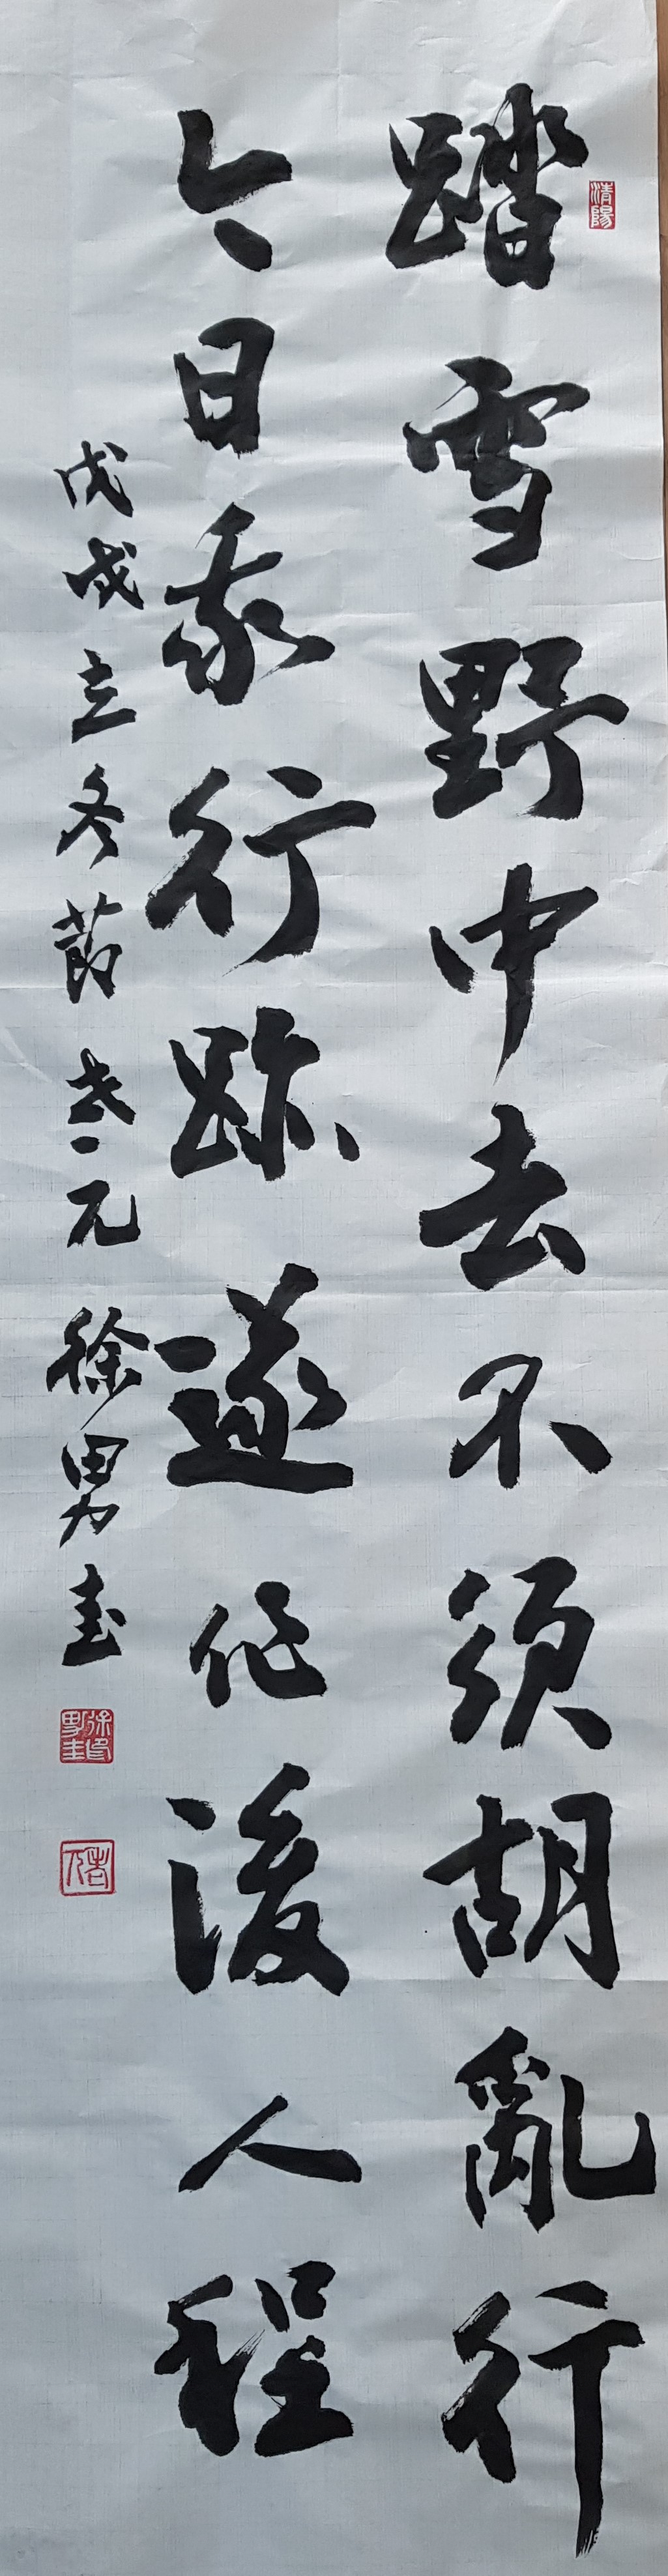 清陽
踏雪野中去不須胡亂行
今日我行跡遂作後人程
戊戌立冬節 元 徐男圭
徐印男圭